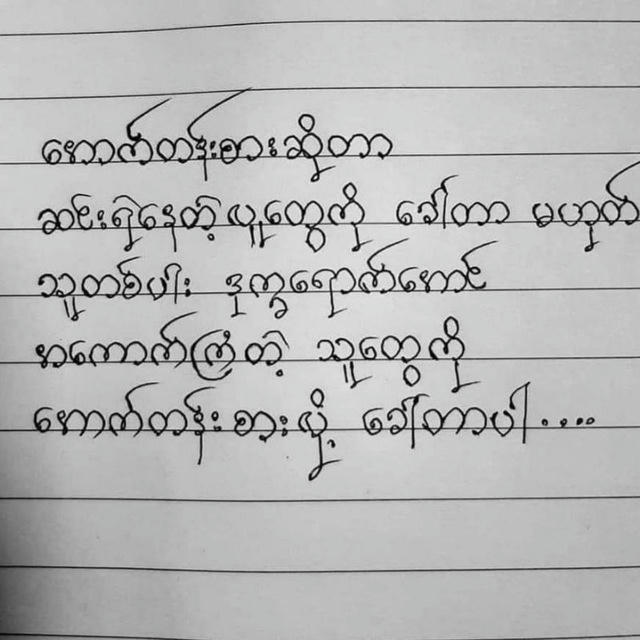 အောက်တန်းစားဆိုတာ
ဆင်းရဲနေတဲ့လူတွေကို ခေါ်တာ မဟုတ်
သူတစ်ပါး ဒုက္ခရောက်အောင်
အကောက်ကြံတဲ့ သူတွေကို
အောက်တန်းစားလို့ ခေါ်တာပါ.....